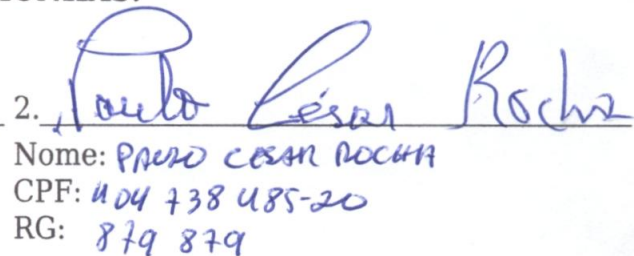 2. Paulo César Rocha
Nome: PAULO CESAR ROCHA
CPF: 404 738 485-20
RG: 879 879